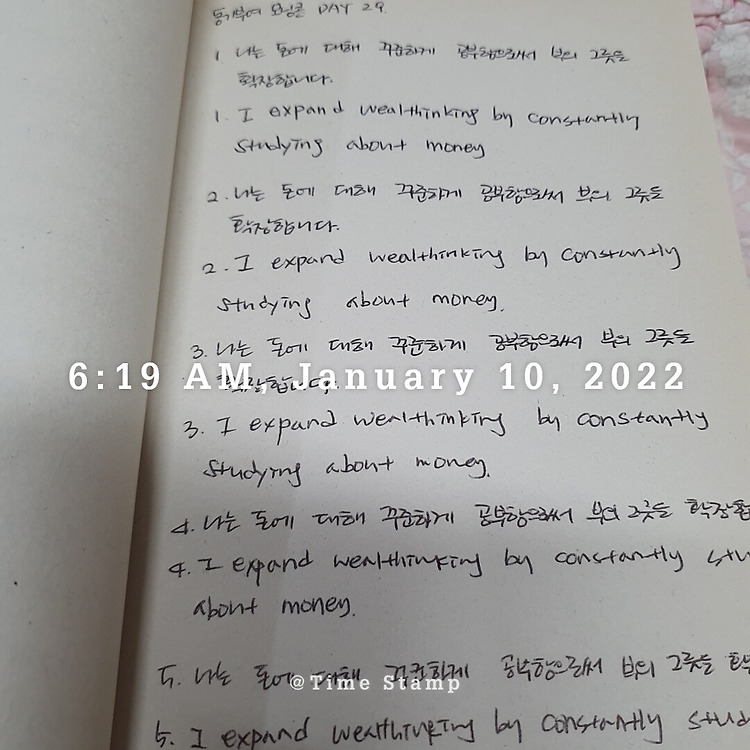 동기부여 모닝콜 DAY 29.
1 나는 돈에 대해 꾸준하게 공부함으로써 부의 그릇을
확장합니다.
1. I expand wealthinking by constantly
studying about money
2. 나는 돈에 대해 꾸준하게 공부함으로써 부의 그릇을
확장합니다.
2. I expand wealthinking by constantly
studying about money.
3. 나는 돈에 대해 꾸준하게 공부함으로써 부의 그릇을
6:19 AM, January 10, 2022
확장합니다.
3. I expand wealthinking by constantly
studying about money.
4. 나는 돈에 대해 꾸준하게 공부함으로써 부의 그릇을 확장합
4. I expand wealthinking by constantly stu
about money.
5. 나는 돈에 대해 꾸준하게 공부함으로써 부의 그릇을 확
@Time Stamp
5. I expand wealthinking by constantly stud